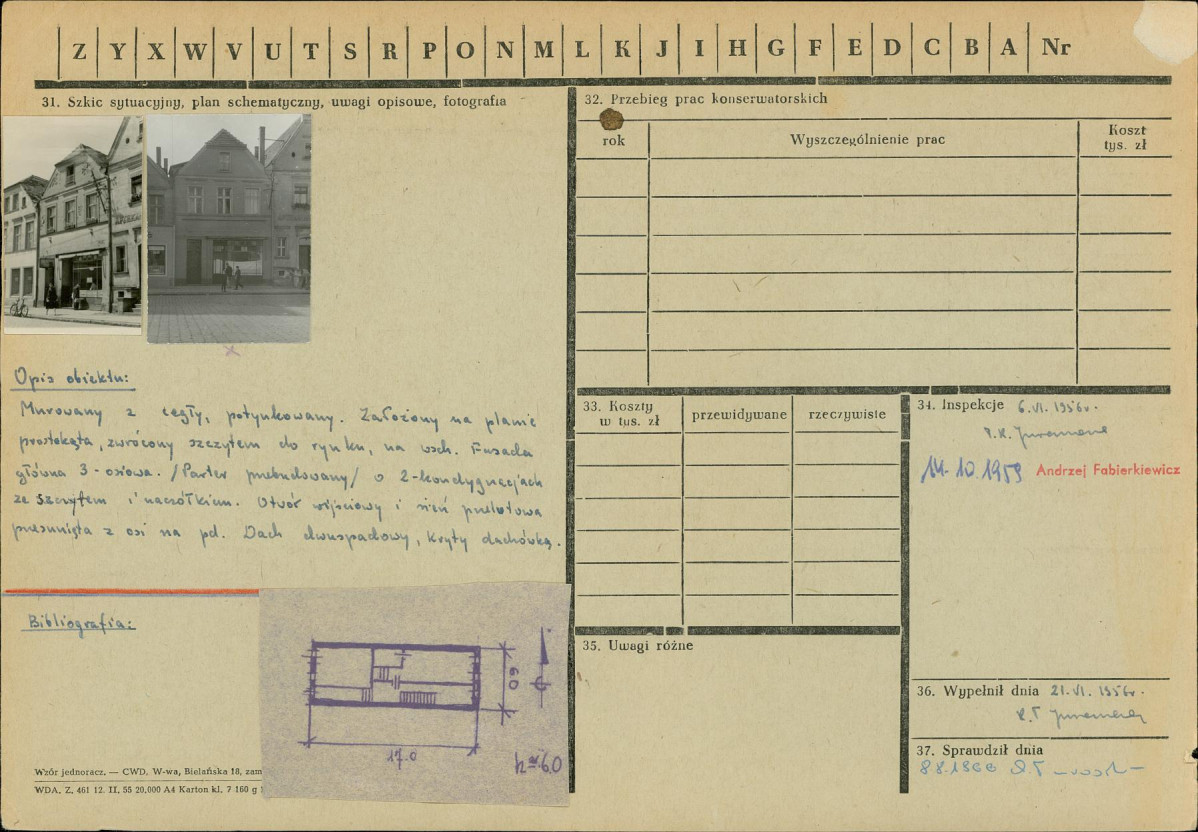 Z Y X W V U T S R P O N M L K J I H G F E D C B A Nr
31. Szkic sytuacyjny, plan schematyczny, uwagi opisowe, fotografia
Opis obiektu:
Murowany z cegły, potynkowany. Założony na planie
prostokąta, zwrócony szczytem do rynku, na wsch. Fasada
główna 3-osiowa. /Parter przebudowany/ o 2-kondygnacjach
ze szczytem i naczółkiem. Otwór wejściowy i sień przelotowa
przesunięta z osi na pd. Dach dwuspadowy, kryty dachówką.
Bibliografia:
6.0
17.0
Wzór jednoracz. — CWD. W-wa, Bielańska 18, zam
WDA. Z. 461 12. II. 55 20.000 A4 Karton kl. 7 160 g
32. Przebieg prac konserwatorskich
rok
Wyszczególnienie prac
Koszt
tys. zł
33. Koszty
w tys. zł
przewidywane
rzeczywiste
34. Inspekcje 6.VI.1956r.
14.10.1959 Andrzej Fabierkiewicz
35. Uwagi różne
36. Wypełnił dnia 21.VI.1956r.
37. Sprawdził dnia